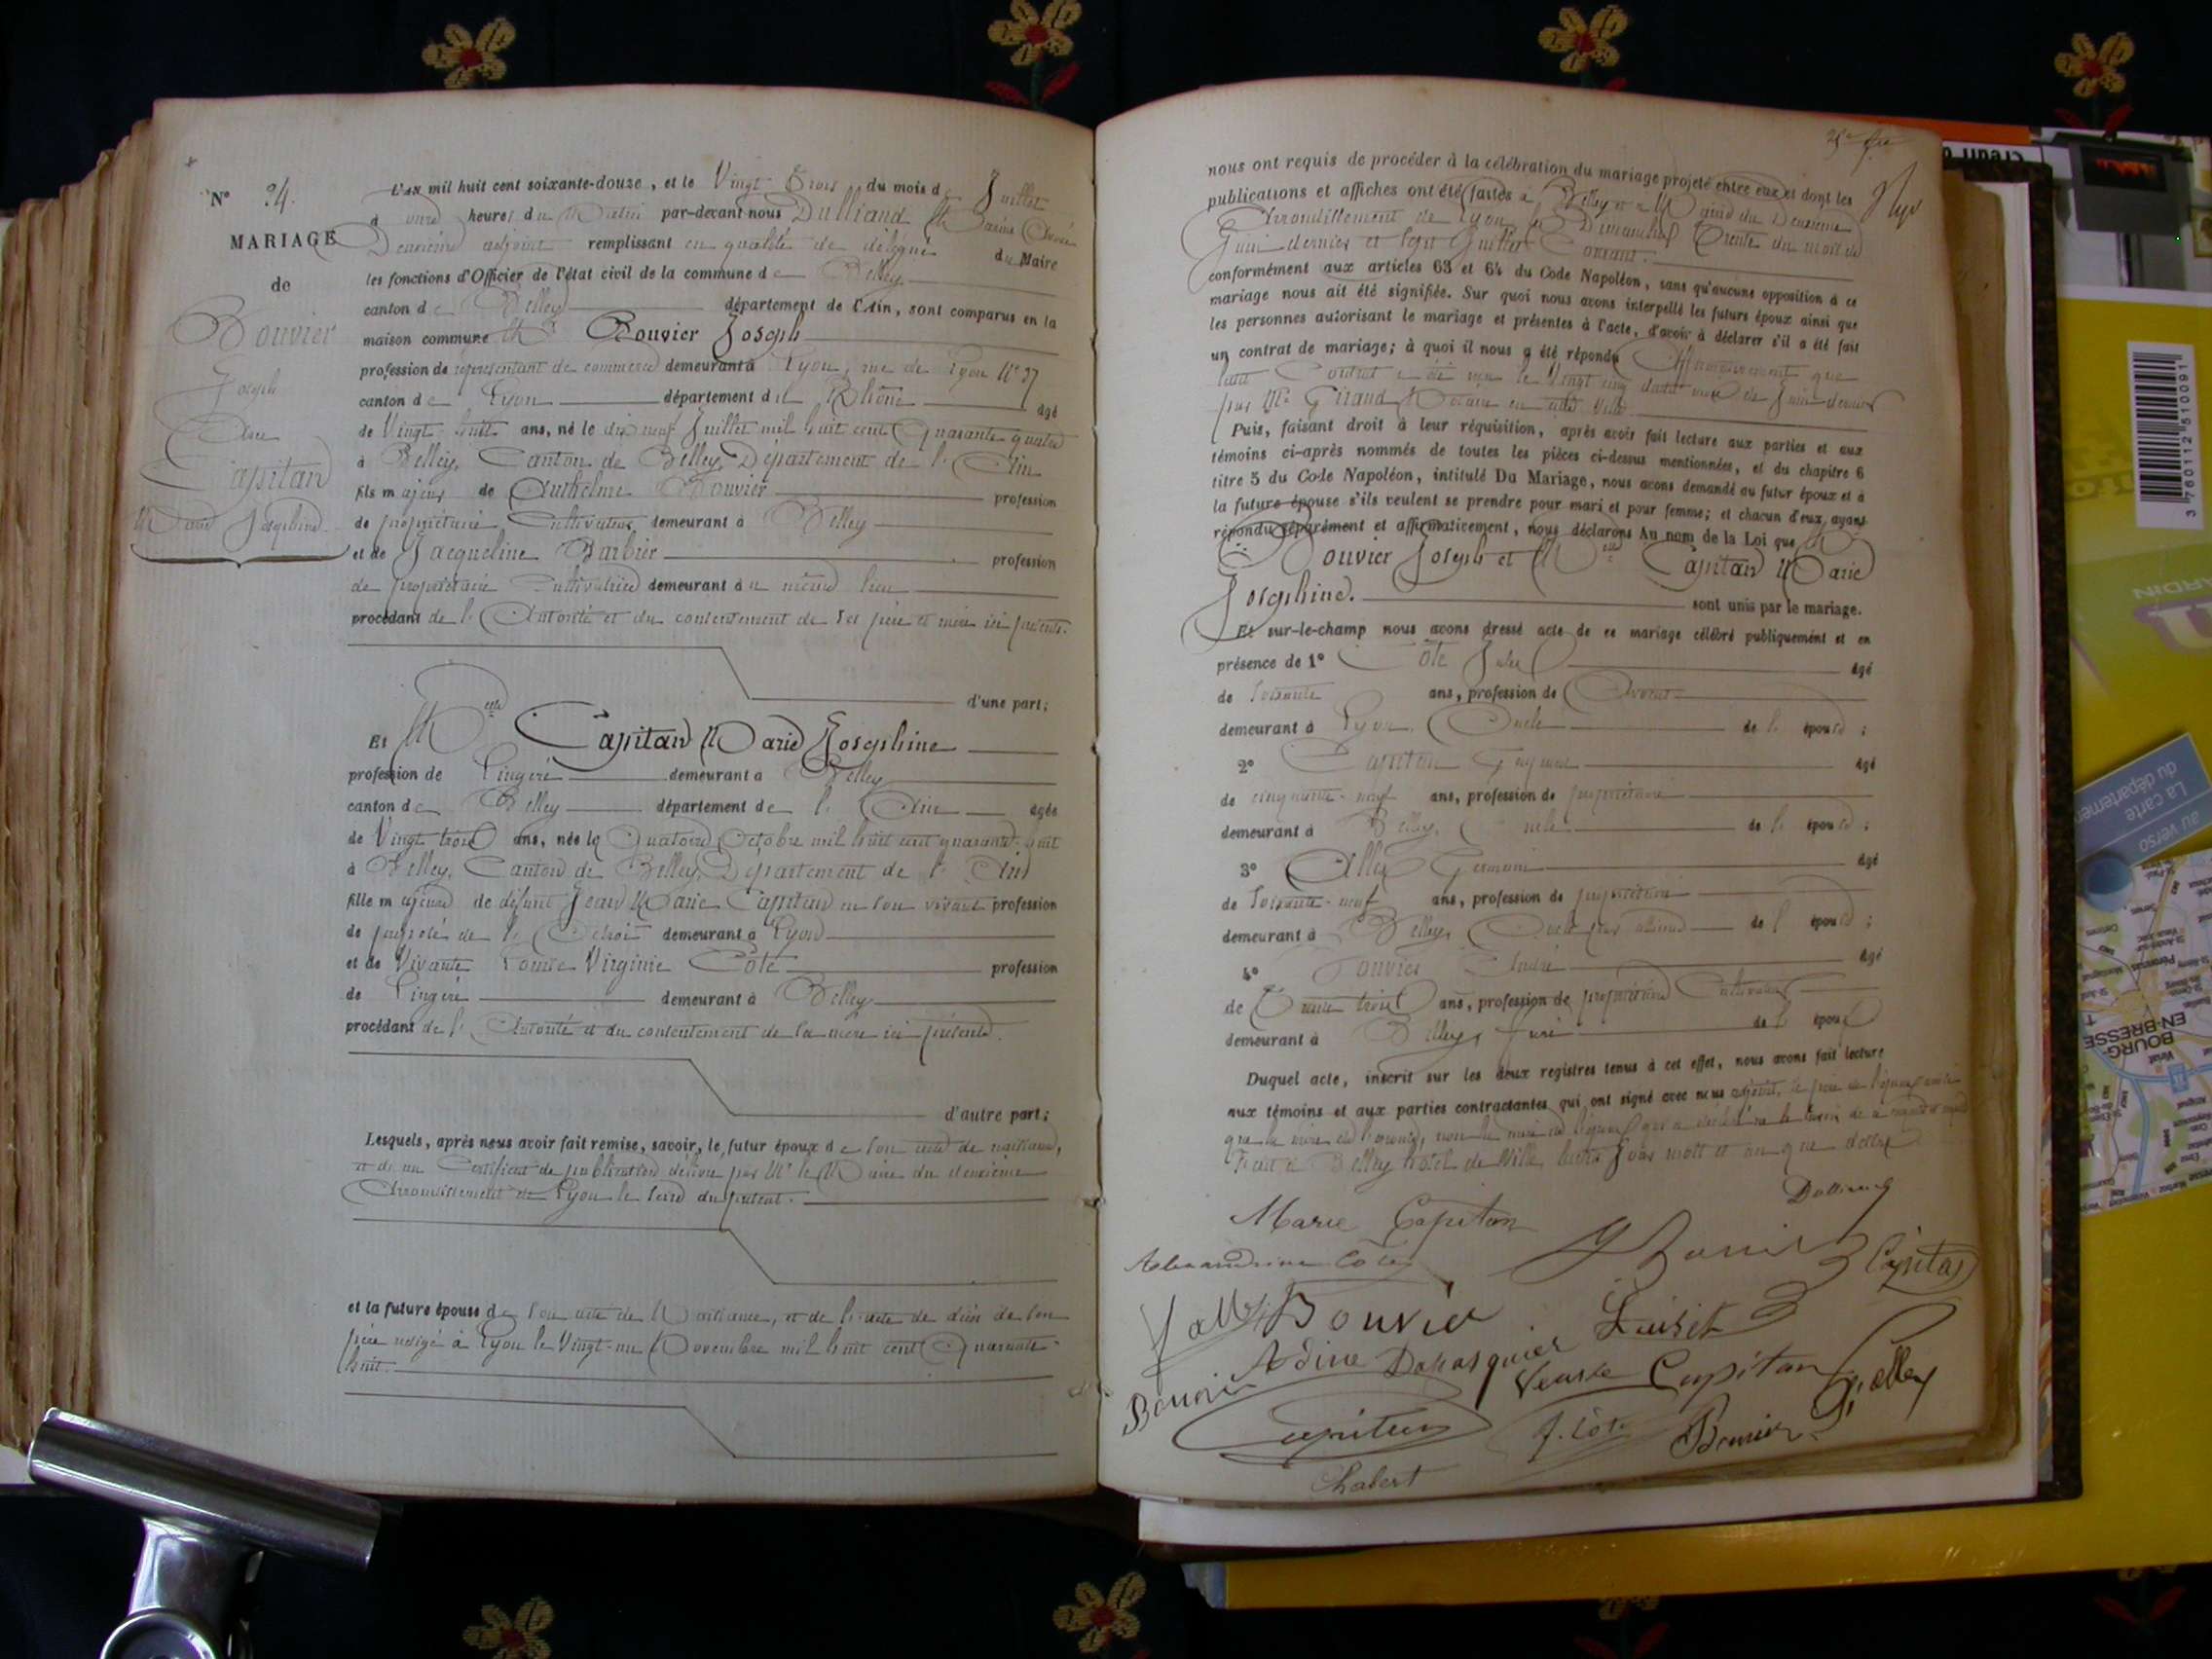 N° 24.
MARIAGE
de
Bouvier
Joseph
Avec
Capitan
Marie Joséphine
L'an mil huit cent soixante-douze, et le Vingt Trois du mois de Juillet
à onze heures du Matin par-devant nous Dulliand
Deuxième adjoint remplissant en qualité de délégué du Maire
les fonctions d'Officier de l'état civil de la commune de Belley
canton de Belley département de l'Ain, sont comparus en la
maison commune Mr Bouvier Joseph
profession de représentant de commerce demeurant à Lyon, rue de Lyon N° 37
canton de Lyon département du Rhône âgé
de Vingt-huit ans, né le dix neuf Juillet mil huit cent Quarante quatre
à Belley, Canton de Belley, Département de l'Ain
fils majeur de Anthelme Bouvier profession
de propriétaire Cultivateur demeurant à Belley
et de Jacqueline Barbier profession
de propriétaire Cultivatrice demeurant au même lieu
procédant de l'Autorité et du consentement de ses père et mère ici présents.
d'une part;
Et Melle Capitan Marie Joséphine
profession de Lingère demeurant à Belley
canton de Belley département de l'Ain agée
de Vingt trois ans, née le Quatorze Octobre mil huit cent quarante-huit
à Belley, Canton de Belley, Département de l'Ain
fille majeure de défunt Jean Marie Capitan en son vivant profession
de de l'Octroi demeurant à Lyon
et de Vivante Louise Virginie Côte profession
de Lingère demeurant à Belley
procédant de l'Autorité et du consentement de sa mère ici présente.
d'autre part;
Lesquels, après nous avoir fait remise, savoir, le futur époux de son acte de naissance,
et de un Certificat de publication délivré par Mr le Maire du deuxième
Arrondissement de Lyon le seize du présent.
et la future épouse de son acte de Naissance, et de l'acte de décès de son
père rédigé à Lyon le Vingt-un Novembre mil huit cent Quarante-
huit.
nous ont requis de procéder à la célébration du mariage projeté entre eux et dont les
publications et affiches ont été faites à Belley et à la Mairie du Deuxième
Arrondissement de Lyon les Dimanches Trente du mois de
Juin dernier et sept Juillet Courant.
conformément aux articles 63 et 64 du Code Napoléon, sans qu'aucune opposition à ce
mariage nous ait été signifiée. Sur quoi nous avons interpellé les futurs époux ainsi que
les personnes autorisant le mariage et présentes à l'acte, d'avoir à déclarer s'il a été fait
un contrat de mariage; à quoi il nous a été répondu Affirmativement que
ledit Contrat a été reçu le Vingt cinq du mois de Juin dernier
par Me Giraud Notaire en cette Ville
Puis, faisant droit à leur réquisition, après avoir fait lecture aux parties et aux
témoins ci-après nommés de toutes les pièces ci-dessus mentionnées, et du chapitre 6
titre 5 du Code Napoléon, intitulé Du Mariage, nous avons demandé au futur époux et à
la future épouse s'ils veulent se prendre pour mari et pour femme; et chacun d'eux ayant
répondu séparément et affirmativement, nous déclarons Au nom de la Loi que Mr
Bouvier Joseph et Melle Capitan Marie
Joséphine. sont unis par le mariage.
Et sur-le-champ nous avons dressé acte de ce mariage célébré publiquement et en
présence de 1° Côte Jules âgé
de Soixante ans, profession de Avocat
demeurant à Lyon. Oncle de l'épouse;
2° Capitan âgé
de cinquante-neuf ans, profession de propriétaire
demeurant à Belley, Oncle de l'épouse;
3° Germain âgé
de Soixante-neuf ans, profession de propriétaire
demeurant à Belley, Oncle par alliance de l'épouse;
4° Bouvier André âgé
de Trente trois ans, profession de propriétaire Cultivateur
demeurant à Belley, frère de l'époux
Duquel acte, inscrit sur les deux registres tenus à cet effet, nous avons fait lecture
aux témoins et aux parties contractantes qui ont signé avec nous adjoint, le père de l'époux
que la mère de l'épouse, non la mère de l'époux qui a déclaré ne le savoir de ce
Fait à Belley hôtel de Ville
Marie Capitan
Alexandrine Côte
Bouvier Capitan
Bouvier Luiset
Adine Dapasquier
Bouvier Veuve Capitan
Capitan J. Côte Bouvier
Chabert
3 760112 510091
La carte
du départeme
au verso
BOURG-
EN-BRESSE